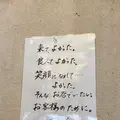 来てよかった。
食べてよかった。
笑顔になれて
よかった。
そんなお店でいたい。
お客様のために。